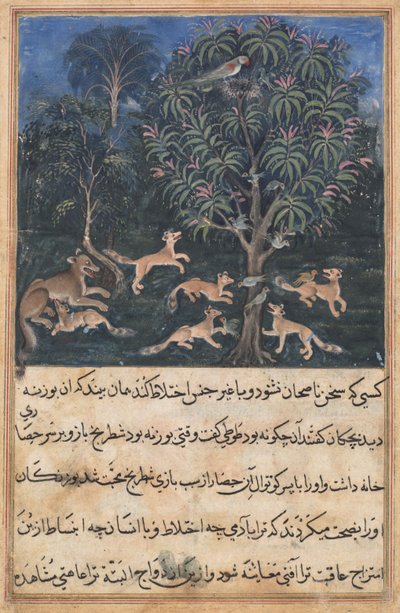 کسی که سخن ناصحان نشنود و با غیر جنس اختلاط کند همان بیند که آن بوزنه
دید بچکان گفتند آن چگونه بود طوطی گفت وقتی بوزنه بود شطرنج باز و بر سر حصار
خانه داشت و او را با پسر کوتوال آن حصار از سبب بازی شطرنج محبت شد بوزنگان
او را نصیحت میکردند که ترا با آدمی چه اختلاط و با انسان چه انبساط ازین
امتزاج عاقبت ترا آفتی معاینه شود و ازین ازدواج البته ترا عاهتی مشاهده